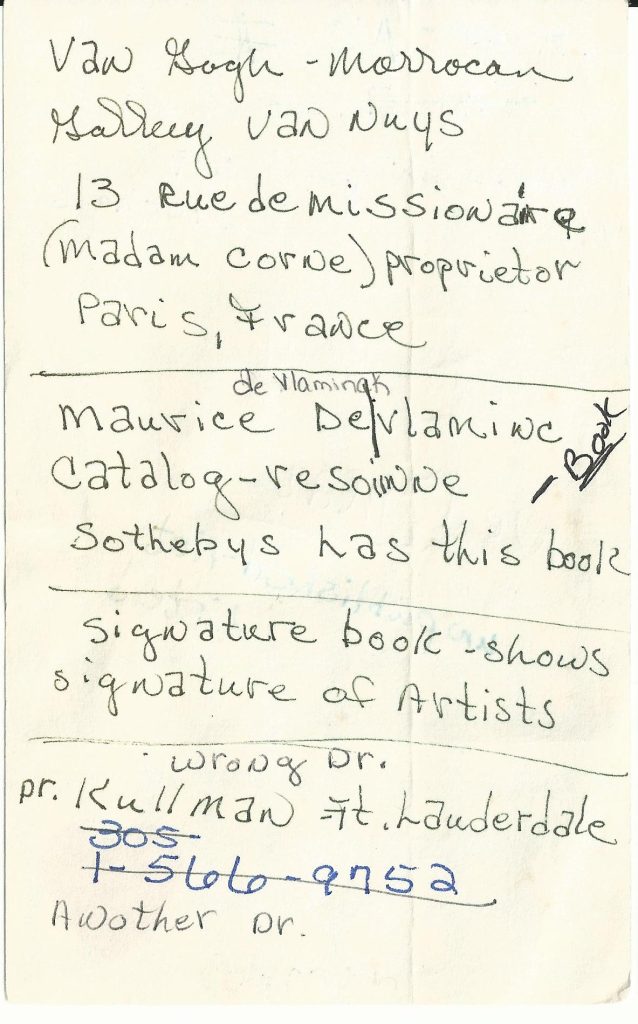 Van Gogh - Morrocan
Gallery Van Nuys
13 Rue de missionaire
(madam corne) proprietor
Paris, France
de Vlaminck
Maurice De Vlaminc
- Book
Catalog-resoinne
Sothebys has this book
signature book - shows
signature of Artists
wrong Dr.
Dr. Kullman Ft. Lauderdale
305
1-566-9752
Another Dr.